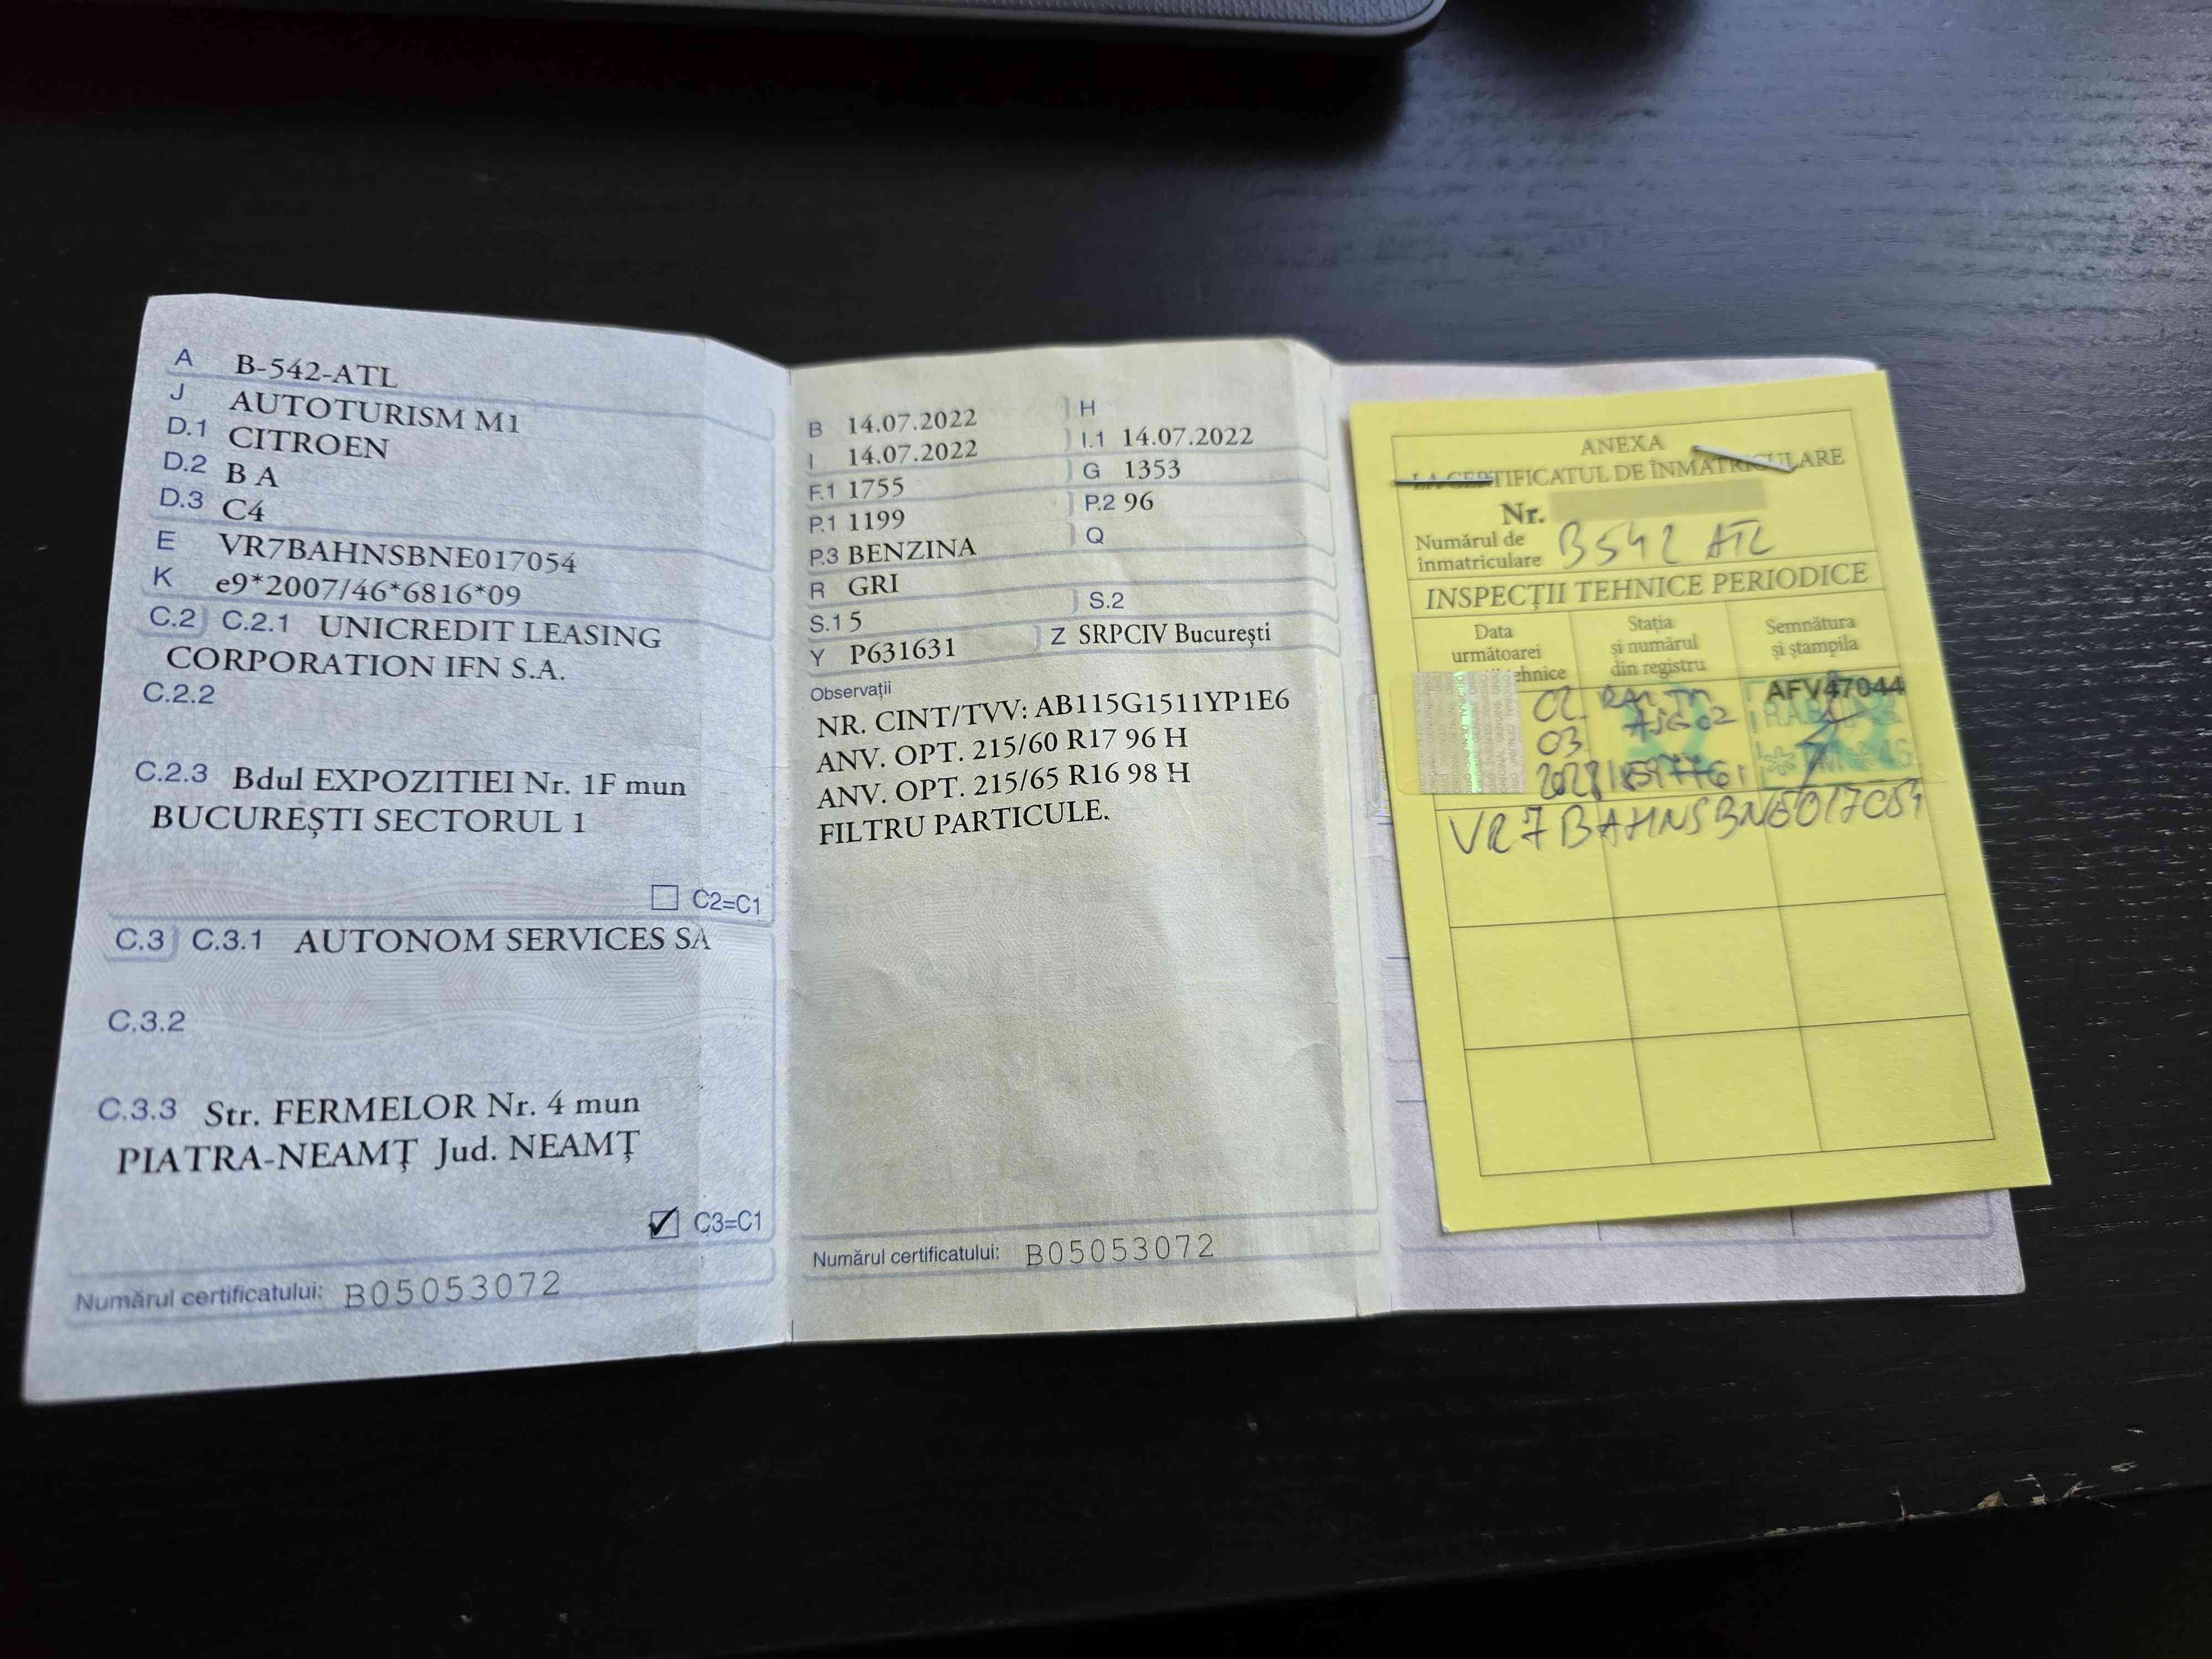 A B-542-ATL
J AUTOTURISM M1
D.1 CITROEN
D.2 B A
D.3 C4
E VR7BAHNSBNE017054
K e9*2007/46*6816*09
C.2 C.2.1 UNICREDIT LEASING
CORPORATION IFN S.A.
C.2.2
C.2.3 Bdul EXPOZITIEI Nr. 1F mun
BUCUREȘTI SECTORUL 1
C2=C1
C.3 C.3.1 AUTONOM SERVICES SA
C.3.2
C.3.3 Str. FERMELOR Nr. 4 mun
PIATRA-NEAMȚ Jud. NEAMȚ
C3=C1
Numărul certificatului: B05053072
B 14.07.2022 H
I 14.07.2022 I.1 14.07.2022
F.1 1755 G 1353
P.1 1199 P.2 96
P.3 BENZINA Q
R GRI
S.1 5 S.2
Y P631631 Z SRPCIV București
Observații
NR. CINT/TVV: AB115G1511YP1E6
ANV. OPT. 215/60 R17 96 H
ANV. OPT. 215/65 R16 98 H
FILTRU PARTICULE.
Numărul certificatului: B05053072
ANEXA
LA CERTIFICATUL DE ÎNMATRICULARE
Nr.
Numărul de
înmatriculare B542 ATL
INSPECȚII TEHNICE PERIODICE
Data
următoarei
tehnice
Stația
și numărul
din registru
Semnătura
și ștampila
02
03
AFV47044
VR7BAHNSBNE017054